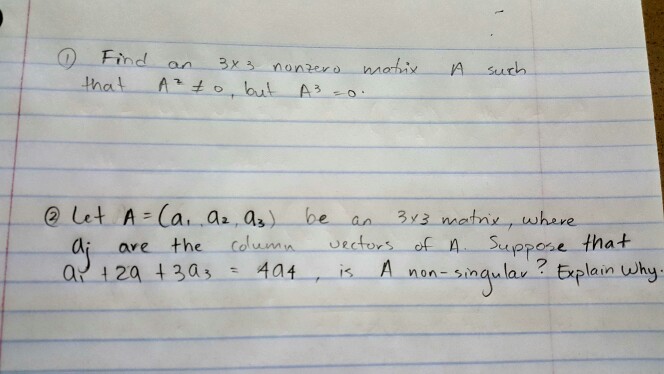 ① Find an 3x3 nonzero matrix A such
that A² ≠ 0, but A³ = 0.
② Let A = (a₁, a₂, a₃) be an 3x3 matrix, where
aⱼ are the column vectors of A. Suppose that
a₁ + 2a + 3a₃ = 4a₄, is A non-singular? Explain why.